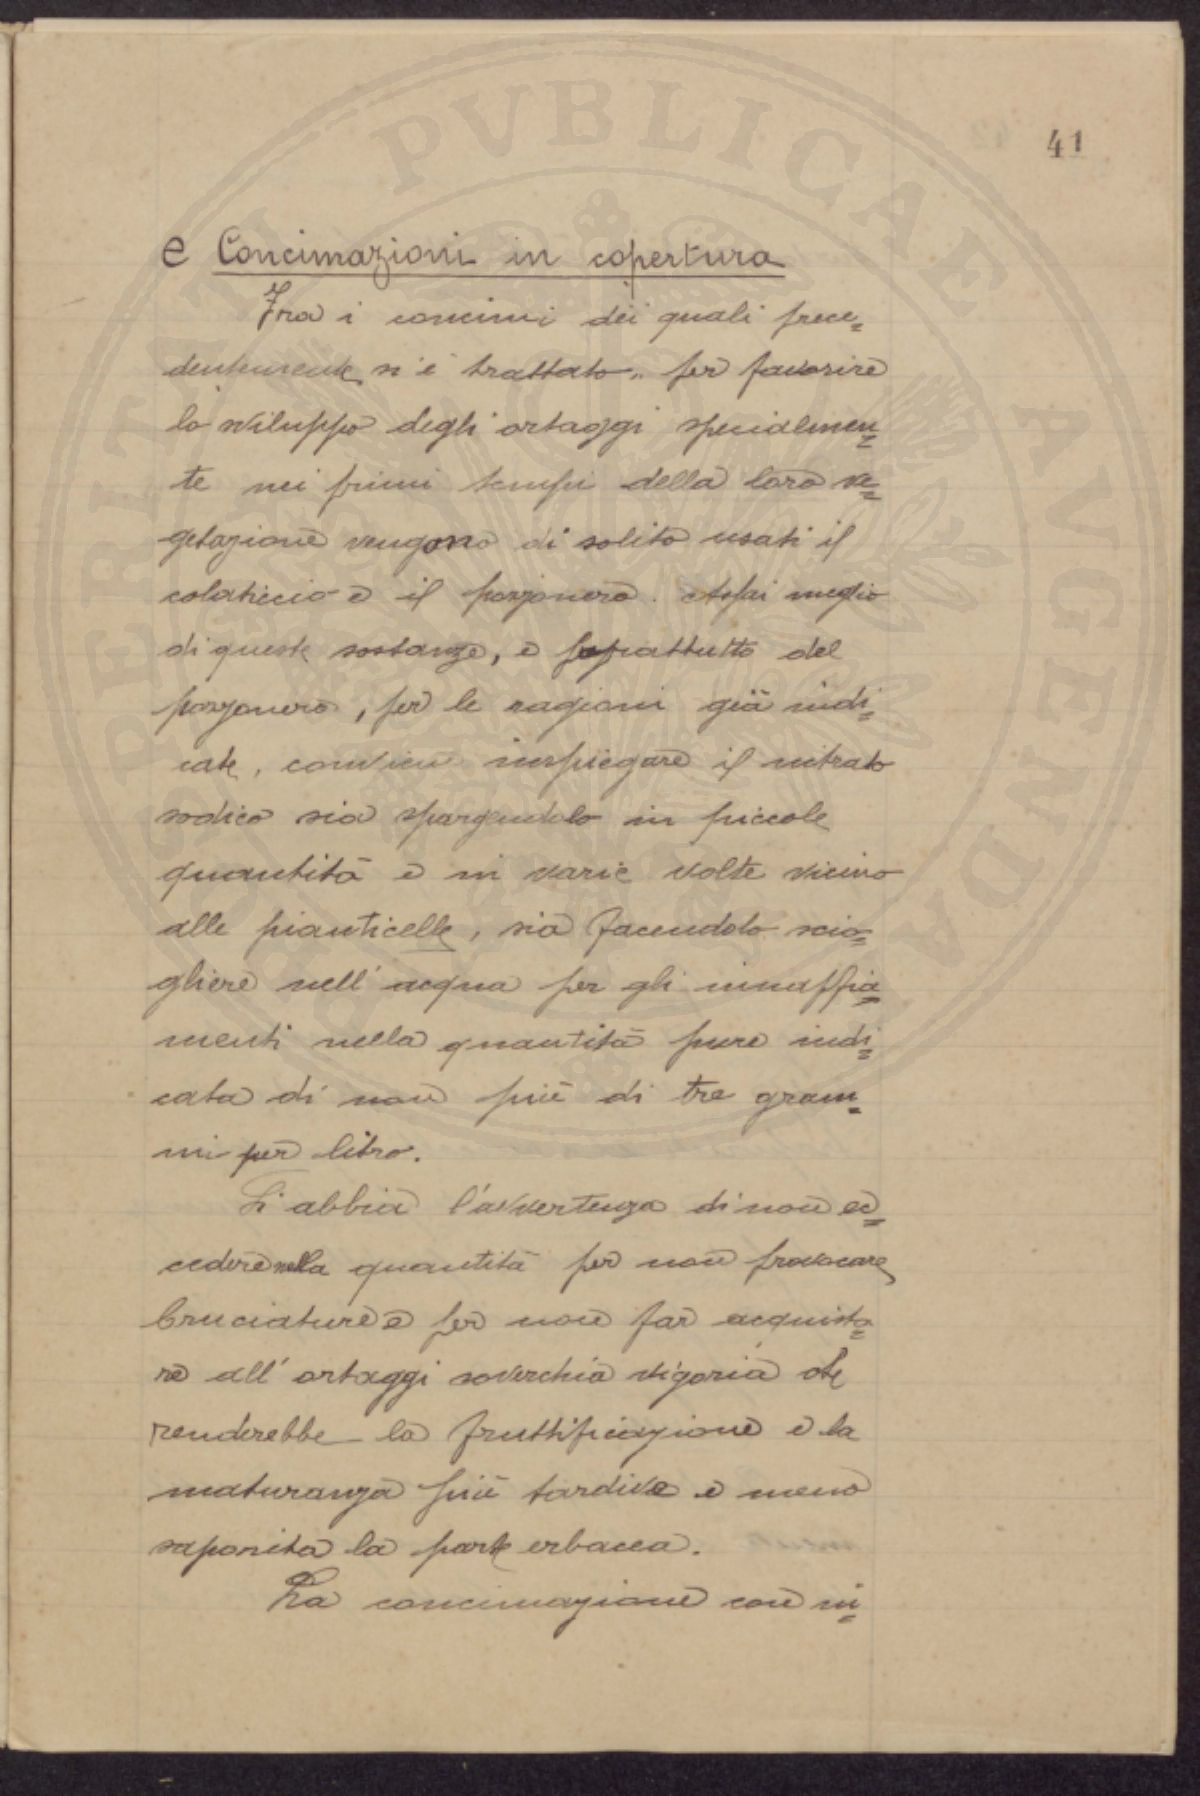 PROSPERITATI PVBLICAE AVGENDAE
41
e Concimazioni in copertura
Fra i concimi dei quali prece=
dentemente si è trattato, per favorire
lo sviluppo degli ortaggi specialmen=
te nei primi tempi della loro ve=
getazione vengono di solito usati il
colaticcio e il pozzonero. Assai meglio
di queste sostanze, e soprattutto del
pozzonero, per le ragioni già indi=
cate, conviene impiegare il nitrato
sodico sia spargendolo in piccole
quantità e in varie volte vicino
alle pianticelle, sia facendolo scio=
gliere nell'acqua per gli innaffia=
menti nella quantità pure indi=
cata di non più di tre gram=
mi per litro.
Si abbia l'avvertenza di non ec=
cedere nella quantità per non provocare
bruciature e per non far acquista=
re all'ortaggi soverchia vigoria che
renderebbe la fruttificazione e la
maturanza più tardiva e meno
saporita la parte erbacea.
La concimazione con ni=